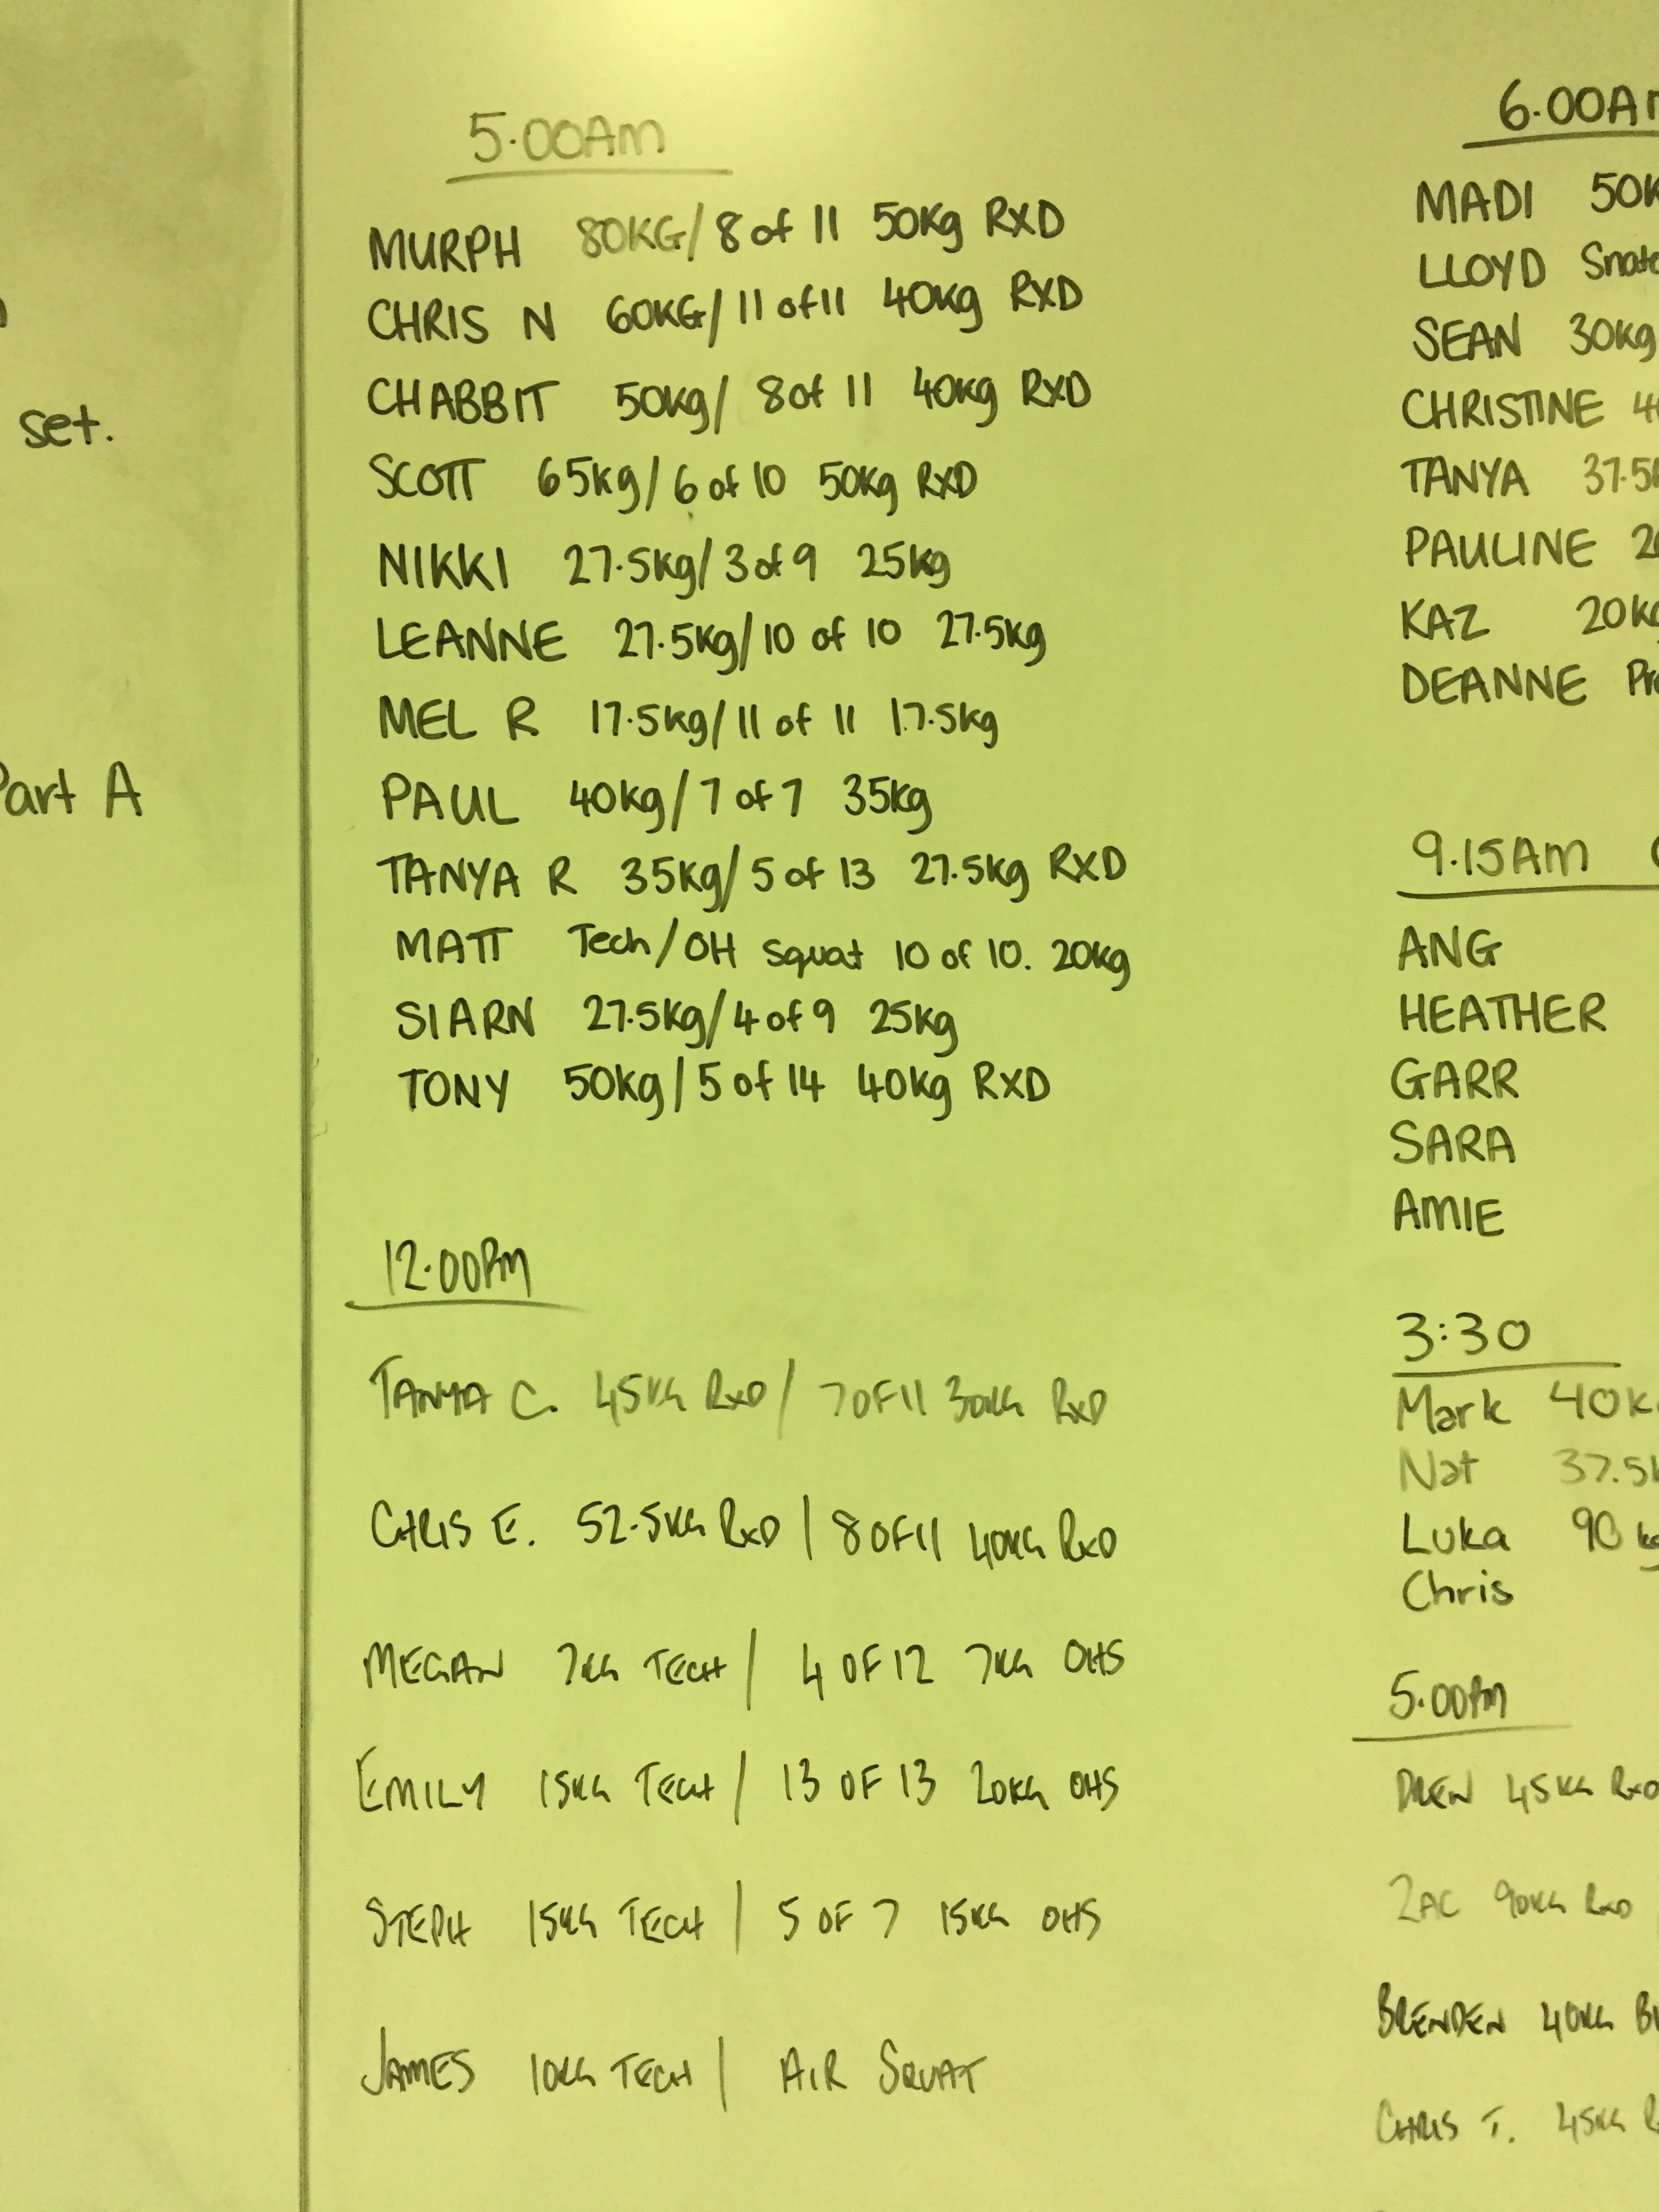 set.
Part A
5.00AM
MURPH 80KG/8 of 11 50Kg RXD
CHRIS N 60KG/11 of 11 40kg RXD
CHABBIT 50kg/ 8 of 11 40kg RXD
SCOTT 65kg/6 of 10 50kg RXD
NIKKI 27.5kg/3 of 9 25kg
LEANNE 27.5kg/10 of 10 27.5kg
MEL R 17.5kg/11 of 11 17.5kg
PAUL 40kg/7 of 7 35kg
TANYA R 35kg/5 of 13 27.5kg RXD
MATT Tech/OH Squat 10 of 10. 20kg
SIARN 27.5kg/4 of 9 25kg
TONY 50kg/5 of 14 40kg RXD
12.00PM
TANYA C. 45KG RXD/ 7 OF 11 30KG RXD
CHRIS E. 52.5KG RXD | 8 OF 11 40KG RXD
MEGAN 7KG TECH/ 4 OF 12 7KG OHS
EMILY 15KG TECH/ 13 OF 13 20KG OHS
STEPH 15KG TECH | 5 OF 7 15KG OHS
JAMES 10KG TECH | AIR SQUAT
6.00AM
MADI 50K
LLOYD Snatc
SEAN 30kg
CHRISTINE 4
TANYA 37.5
PAULINE 2
KAZ 20kg
DEANNE
9.15AM
ANG
HEATHER
GARR
SARA
AMIE
3:30
Mark 40k
Nat 37.5
Luka 90 kg
Chris
5.00PM
DREW 45KG RXD
ZAC 90KG RXD
BRENDEN 40KG
CHRIS T. 45KG